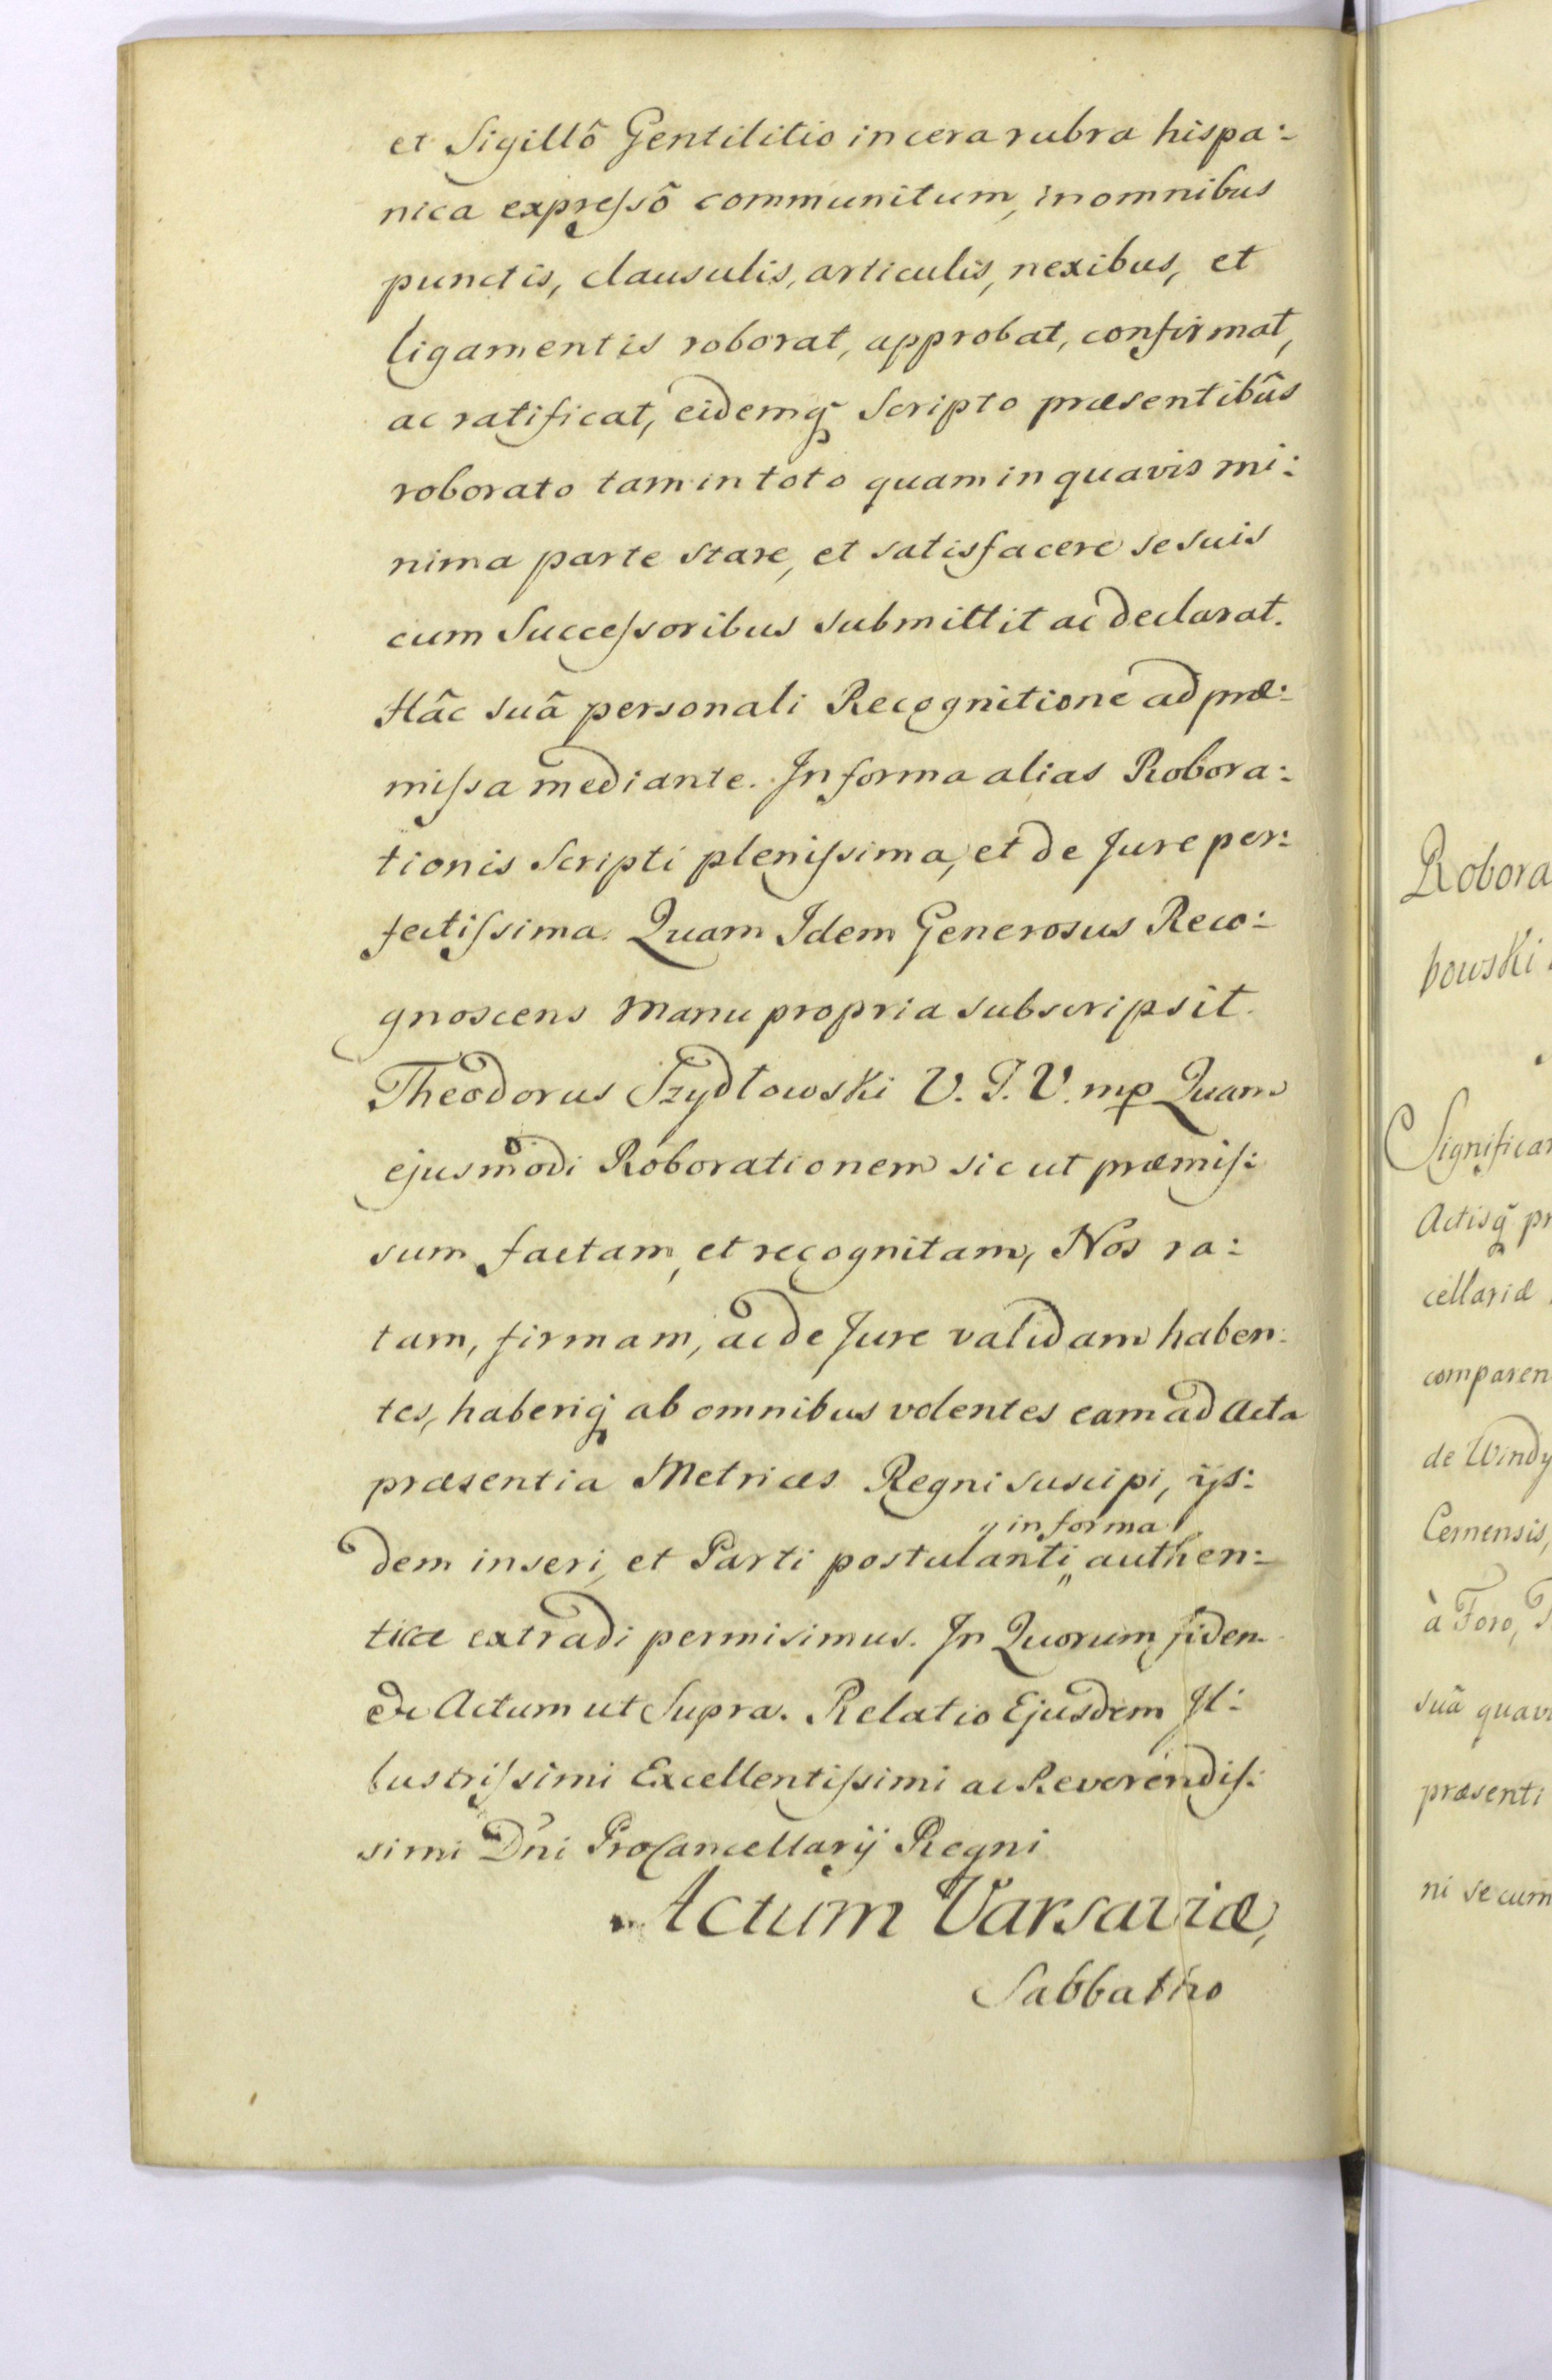 et Sigillô Gentilitio in cera rubra hispa:
nica expressô communitum, in omnibus
punctis, clausulis, articulis, nexibus, et
ligamentis roborat, approbat, confirmat,
ac ratificat, eidemq̃ Scripto præsentibûs
roborato tam in toto quam in quavis mi:
nima parte stare, et satisfacere se suis
cum Successoribus submittit ac declarat.
Hâc suâ personali Recognitione ad præ:
missa mediante. In forma alias Robora:
tionis Scripti plenissima, et de Jure per:
fectissima. Quam Idem Generosus Reco:
gnoscens manu propria subscripsit.
Theodorus Szydłowski V. I. V. mp Quam
ejusmodi Roborationem sic ut præmis:
sum factam, et recognitam, Nos ra:
tam, firmam, ac de Jure validam haben:
tes, haberiq̃ ab omnibus volentes eam ad Acta
præsentia Metrices Regni suscipi, ijs:
in forma
dem inseri, et Parti postulanti„ authen:
tica extradi permisimus. In Quorum fidem
&c Actum ut Supra. Relatio Ejusdem Il:
lustrissimi Excellentissimi ac Reverendis:
simi Dni ProCancellarij Regni
Actum Varsaviæ,
Sabbatho
Robora
bowski
Significan
Actisq̃ pr
cellariæ
comparen
de Windy
Cernensis,
à Foro,
suâ quavi
præsenti
ni secum